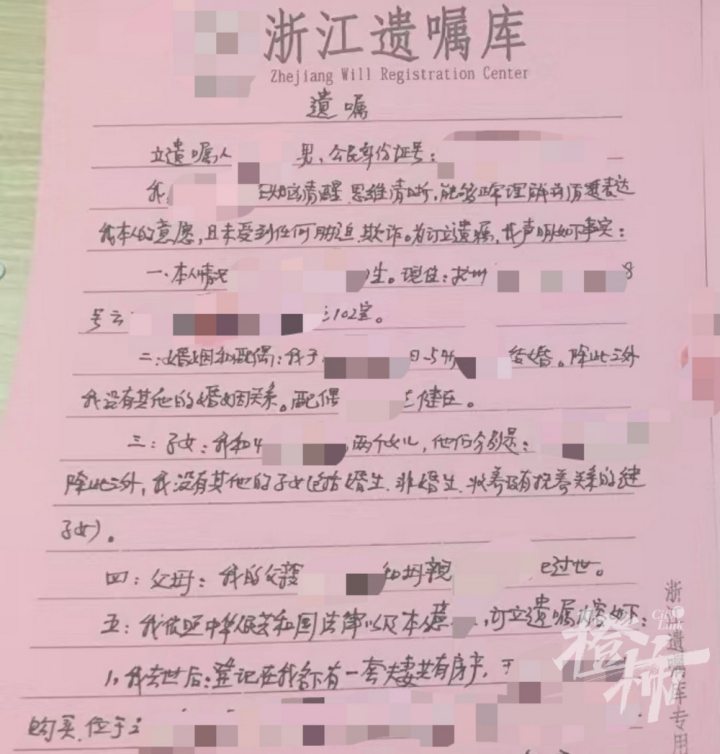 浙江遗嘱库
Zhejiang Will Registration Center
遗嘱
立遗嘱人 男、公民身份证号：
我， 清醒 思维清晰，能够正常理解并清楚表达
我本人的意愿，且未受到任何胁迫、欺诈。为订立遗嘱，并声明如下事实：
一、本人情况 生。现住：杭州 8
号云 102室。
二：婚姻和配偶：我于 日与 结婚。除此之外
我没有其他的婚姻关系。配偶 健在。
三：子女：我和 两个女儿，他们分别是：
除此之外，我没有其他的子女（包括婚生、非婚生、收养及有抚养关系的继
子女）。
四：父母：我的父亲 和母亲 已过世。
五：我依照中华人民共和国法律以及本人意 ，订立遗嘱内容如下：
1、我去世后：登记在我名下有一套夫妻共有房产，于
购买、位于
浙江遗嘱库专用
City Link
橙柿